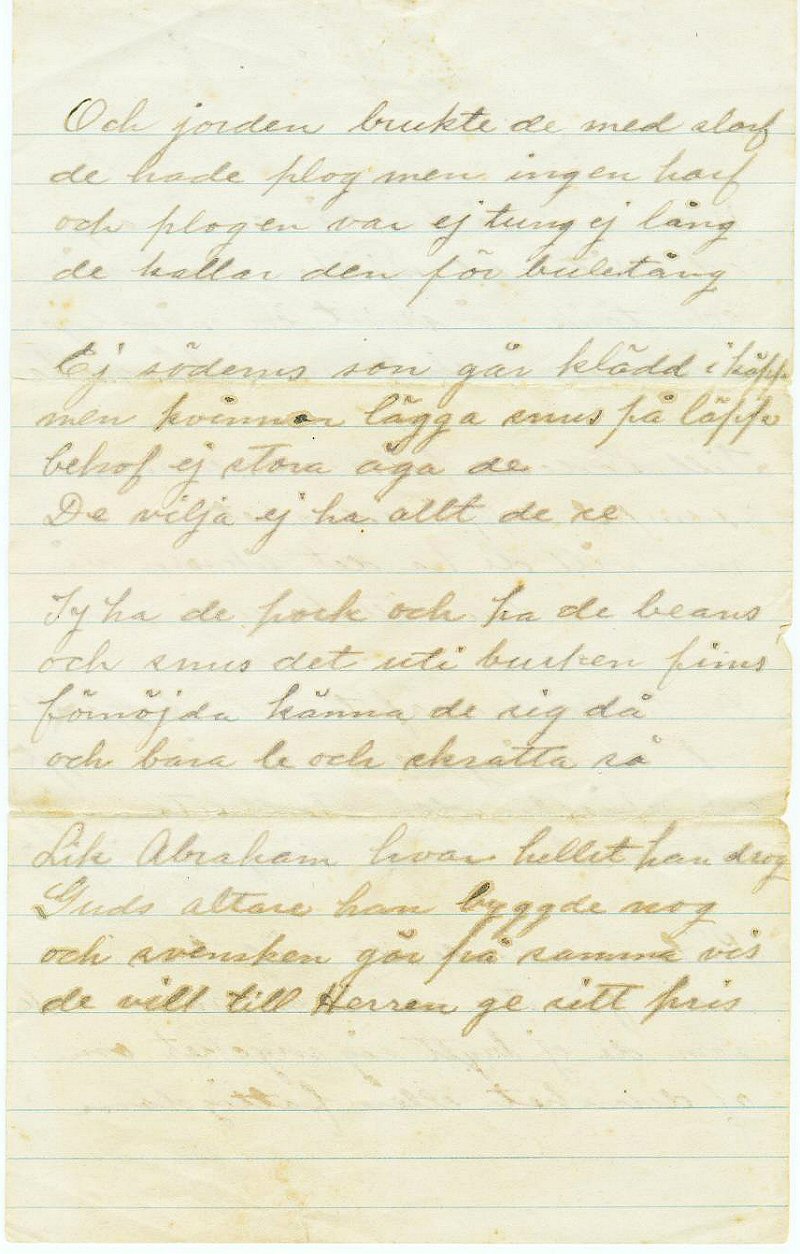 Och jorden brukte de med slarf
de hade plog men ingen harf
och plogen var ej tung ej lång
de kallar den för buletång
Ej söderns son går klädd i käpp
men kvinnor lägga snus på läpp
behof ej stora äga de
De vilja ej ha allt de se
Ty ha de pork och ha de beans
och snus det uti busken fins
förnöjda känna de sig då
och bara le och skratta så
Lik Abraham hvar hellst han drog
Guds altare han byggde nog
och svensken gör på samma vis
de vill till Herren ge sitt pris